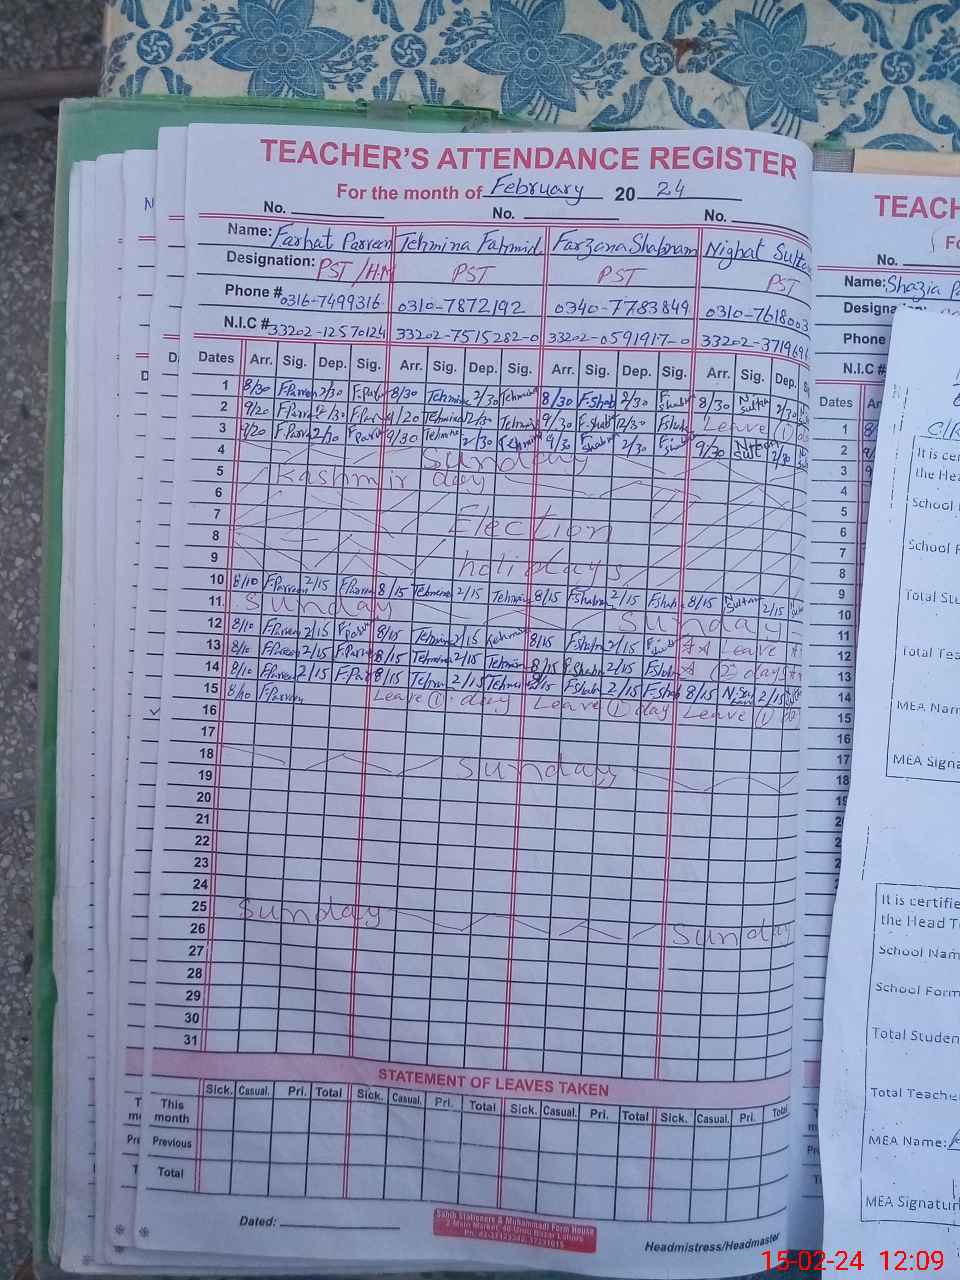 TEACHER'S ATTENDANCE REGISTER
For the month of February 20 24
No. No. No.
Name: Farhat Parveen Tehmina Fahmid Farzana Shabnam Nighat Sultan
Designation: PST/HM PST PST PST
Phone # 0316-7499316 0310-7872192 0340-7783849 0310-7618003
N.I.C # 33202-12570124 33202-7515282-0 33202-0591917-0 33202-371969
Dates Arr. Sig. Dep. Sig. Arr. Sig. Dep. Sig. Arr. Sig. Dep. Sig. Arr. Sig. Dep. S
1 8/30 F.Parveen 2/30 F.Par 8/30 Tehmina 2/30 Tehmina 8/30 F.Shab 2/30 F.Shab 8/30 N Sultan 2/30
2 9/20 F.Parv 12/30 F.Par 9/20 Tehmina 12/30 Tehmi 9/30 F.Shab 12/30 FShab Leave (1) da
3 9/20 F.Parv 2/30 F.Parv 9/30 Tehmin 2/30 Tehmin 9/30 F.Shab 2/30 F.Shab 9/30 Sult 2/30
4 Sunday
5 Kashmir day
6
7 Election
8
9 holidays
10 8/10 F.Parveen 2/15 F.Parve 8/15 Tehmina 2/15 Tehmina 8/15 F.Shabna 2/15 F.Shab 8/15 N Sultan 2/15
11 Sunday Sunday
12 8/10 F.Parveen 2/15 F.Parv 8/15 Tehmina 2/15 Tehmina 8/15 F.Shabn 2/15 F.Shab Leave
13 8/10 F.Parveen 2/15 F.Parv 8/15 Tehmina 2/15 Tehmina 8/15 F.Shabn 2/15 F.Shab (2) days
14 8/10 F.Parveen 2/15 F.Par 8/15 Tehmi 2/15 Tehmi 8/15 F.Shab 2/15 F.Shab 8/15 N.Sul 2/15
15 8/10 F.Parveen Leave (1) day Leave (1) day Leave (1) da
16
17
18 Sunday
19
20
21
22
23
24
25 Sunday Sunday
26
27
28
29
30
31
STATEMENT OF LEAVES TAKEN
Sick. Casual. Pri. Total Sick. Casual. Pri. Total Sick. Casual. Pri. Total Sick. Casual. Pri. Total
This month
Previous
Total
Dated:
Sahib Stationers & Muhammadi Form House
Headmistress/Headmaster
TEACH
Fo
No.
Name: Shazia P
Design
Phone
N.I.C #
Dates Ar
1
2
3
4
5
6
7
8
9
10
11
12
13
14
15
16
17
18
19
It is cer
the Hea
School
School F
Total Stu
Total Tea
MEA Nam
MEA Signa
It is certifie
the Head T
School Nam
School Form
Total Studen
Total Teache
MEA Name:
MEA Signatur
15-02-24 12:09